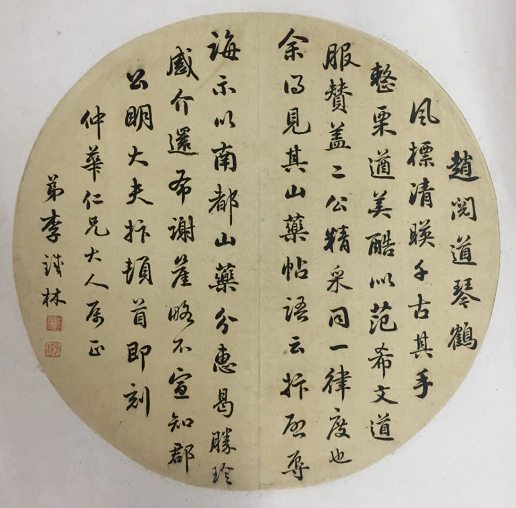 趙閱道琴鶴
風標清暎千古其手
整栗遒美酷似范希文道
服贊蓋二公精采同一律度也
余得見其山藥帖語云抃啟辱
誨示以南都山藥分惠曷勝珍
感介還布謝崖略不宣知郡
公明大夫抃頓首即刻
仲華仁兄大人屬正
弟李鐵林